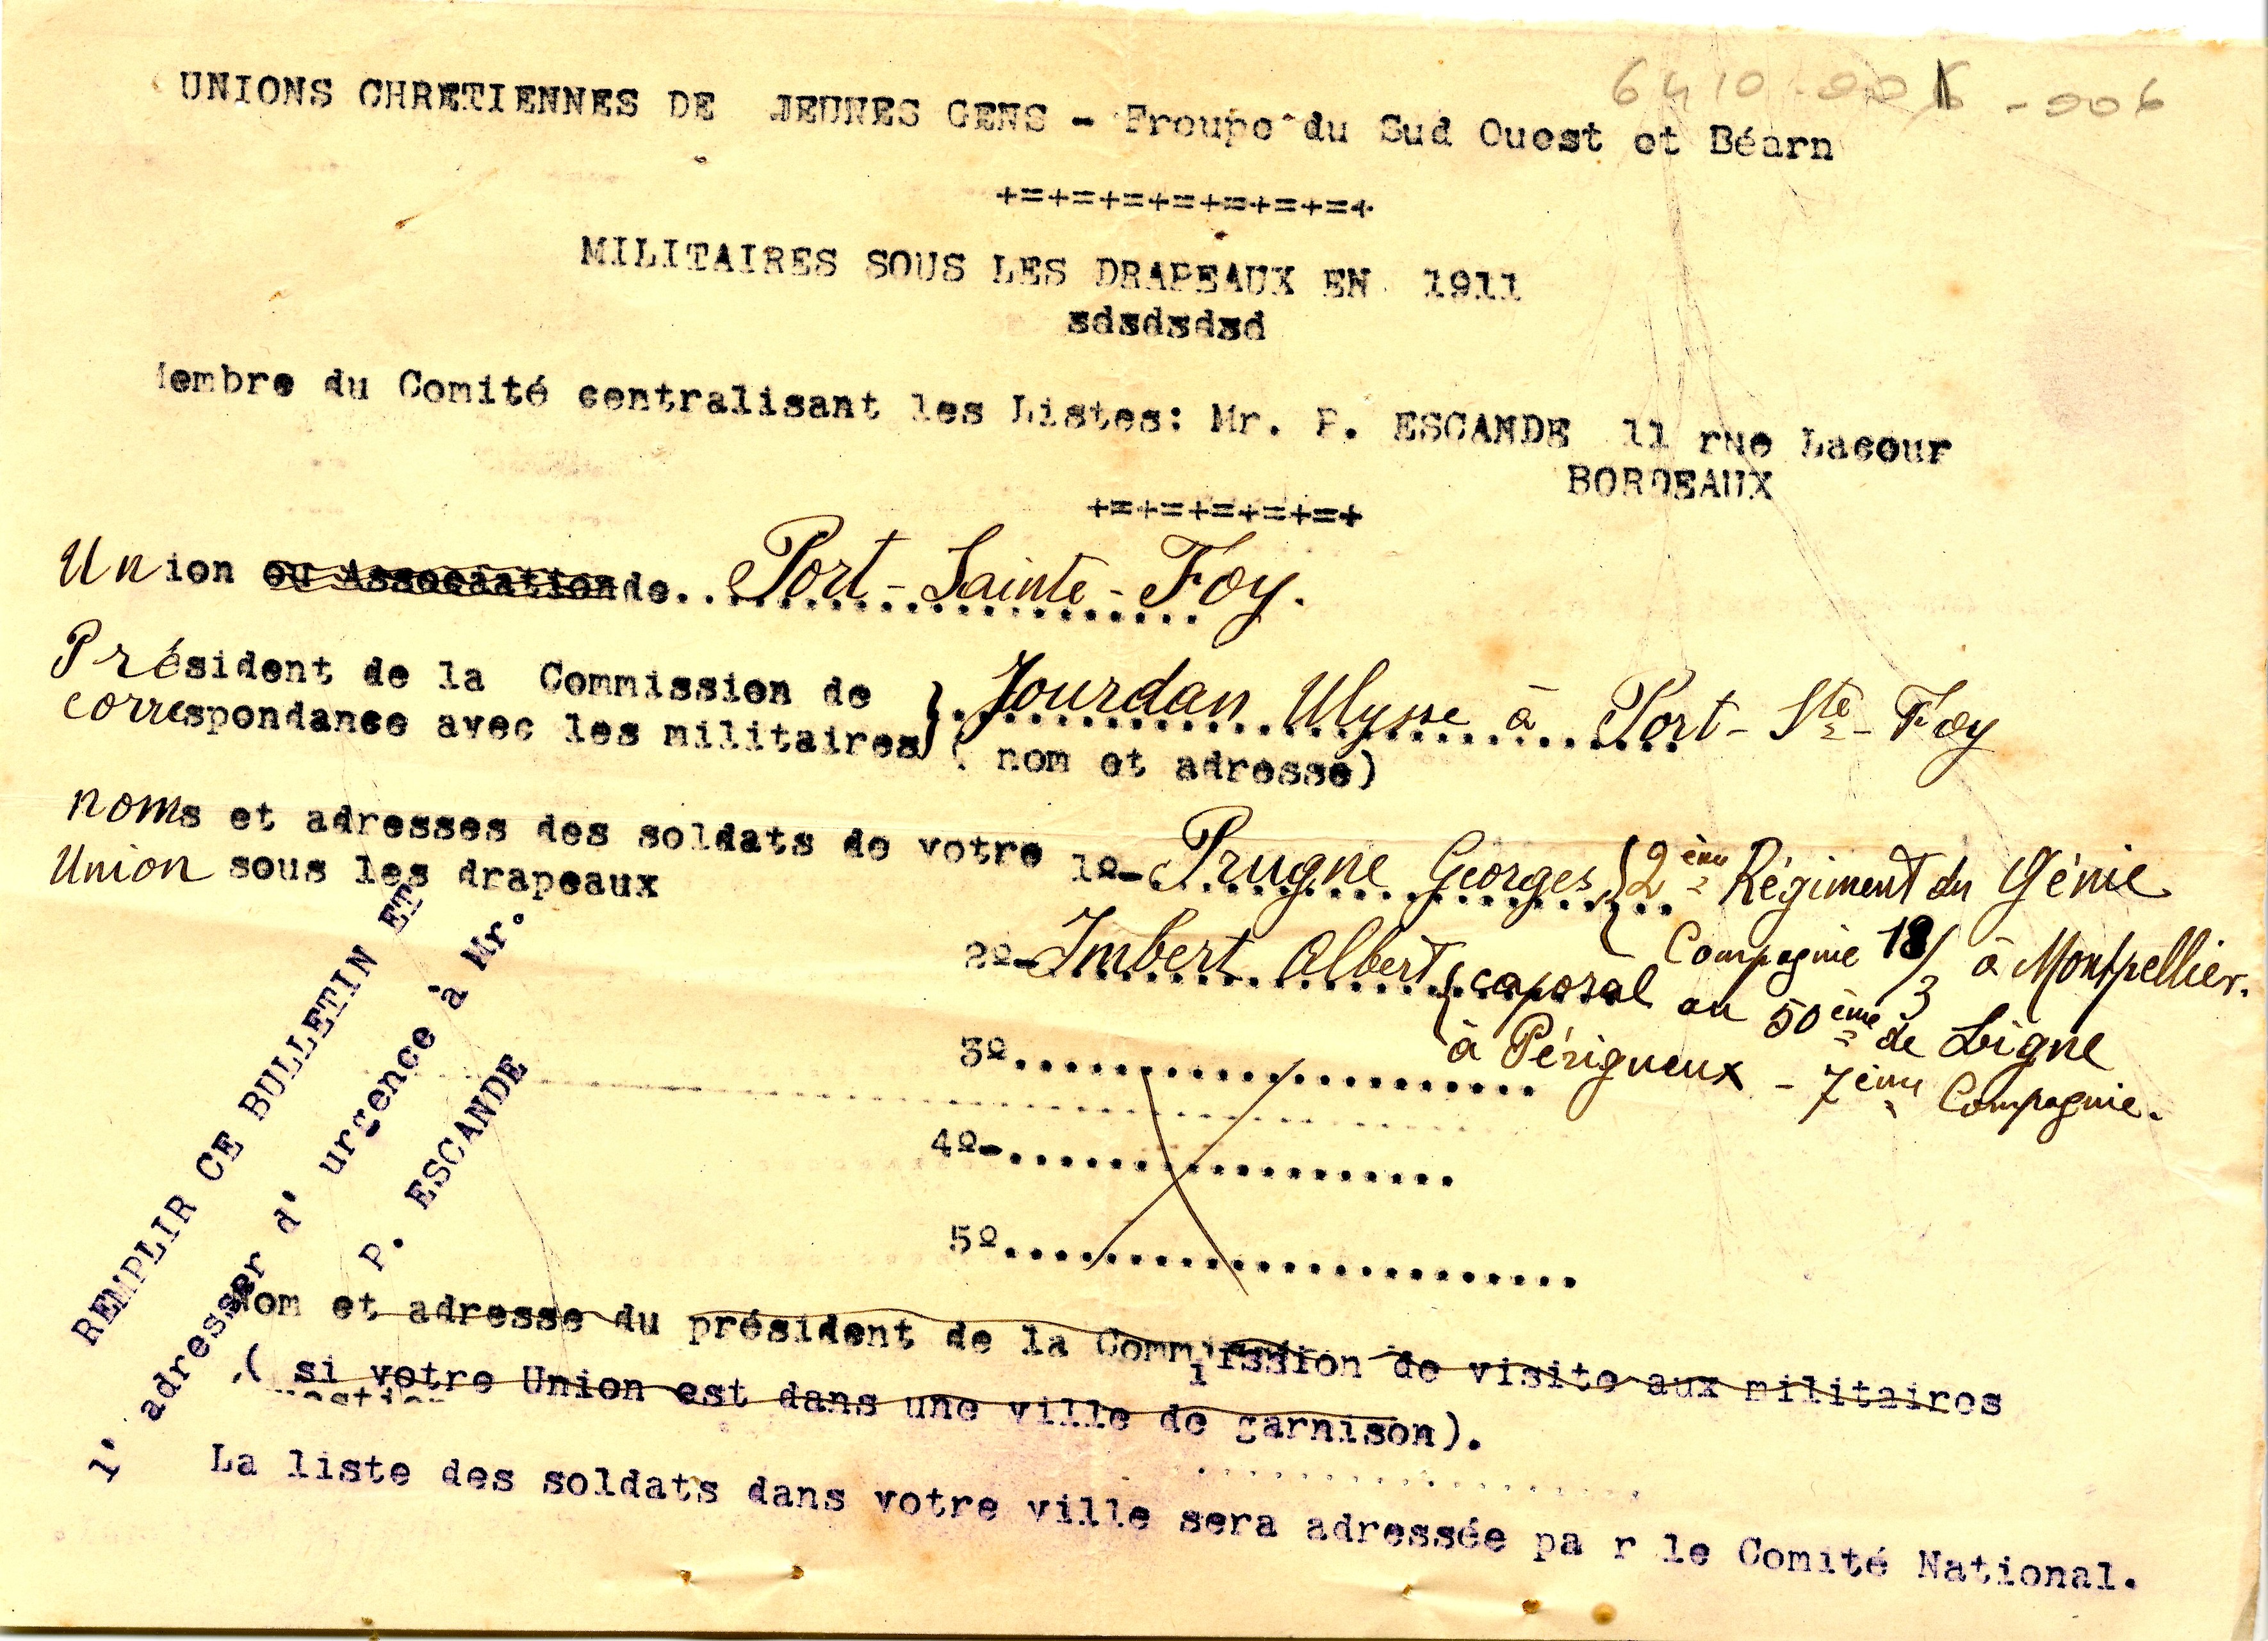 6410-006
UNIONS CHRETIENNES DE JEUNES GENS - Froupe du Sud Ouest et Béarn
+=+=+=+=+=+=+=+
MILITAIRES SOUS LES DRAPEAUX EN 1911
sdsdsdsd
Membre du Comité centralisant les Listes: Mr. P. ESCANDE 11 rue Lacour
BORDEAUX
+=+=+=+=+=+
Union ou Association de. Port-Sainte-Foy.
Président de la Commission de } Jourdan Ulysse à Port-Ste-Foy
correspondance avec les militaires} ( nom et adresse)
noms et adresses des soldats de votre 1º- Prugne Georges { 2ème Régiment du Génie
Union sous les drapeaux
Compagnie 18/3 à Montpellier.
2º- Imbert Albert { caporal au 50ème de Ligne
à Périgueux - 7ème Compagnie.
3º
4º-
5º
REMPLIR CE BULLETIN ET
l' adresser d' urgence à Mr.
P. ESCANDE
Nom et adresse du président de la Commission de visite aux militaires
( si votre Union est dans une ville de garnison).
La liste des soldats dans votre ville sera adressée pa r le Comité National.